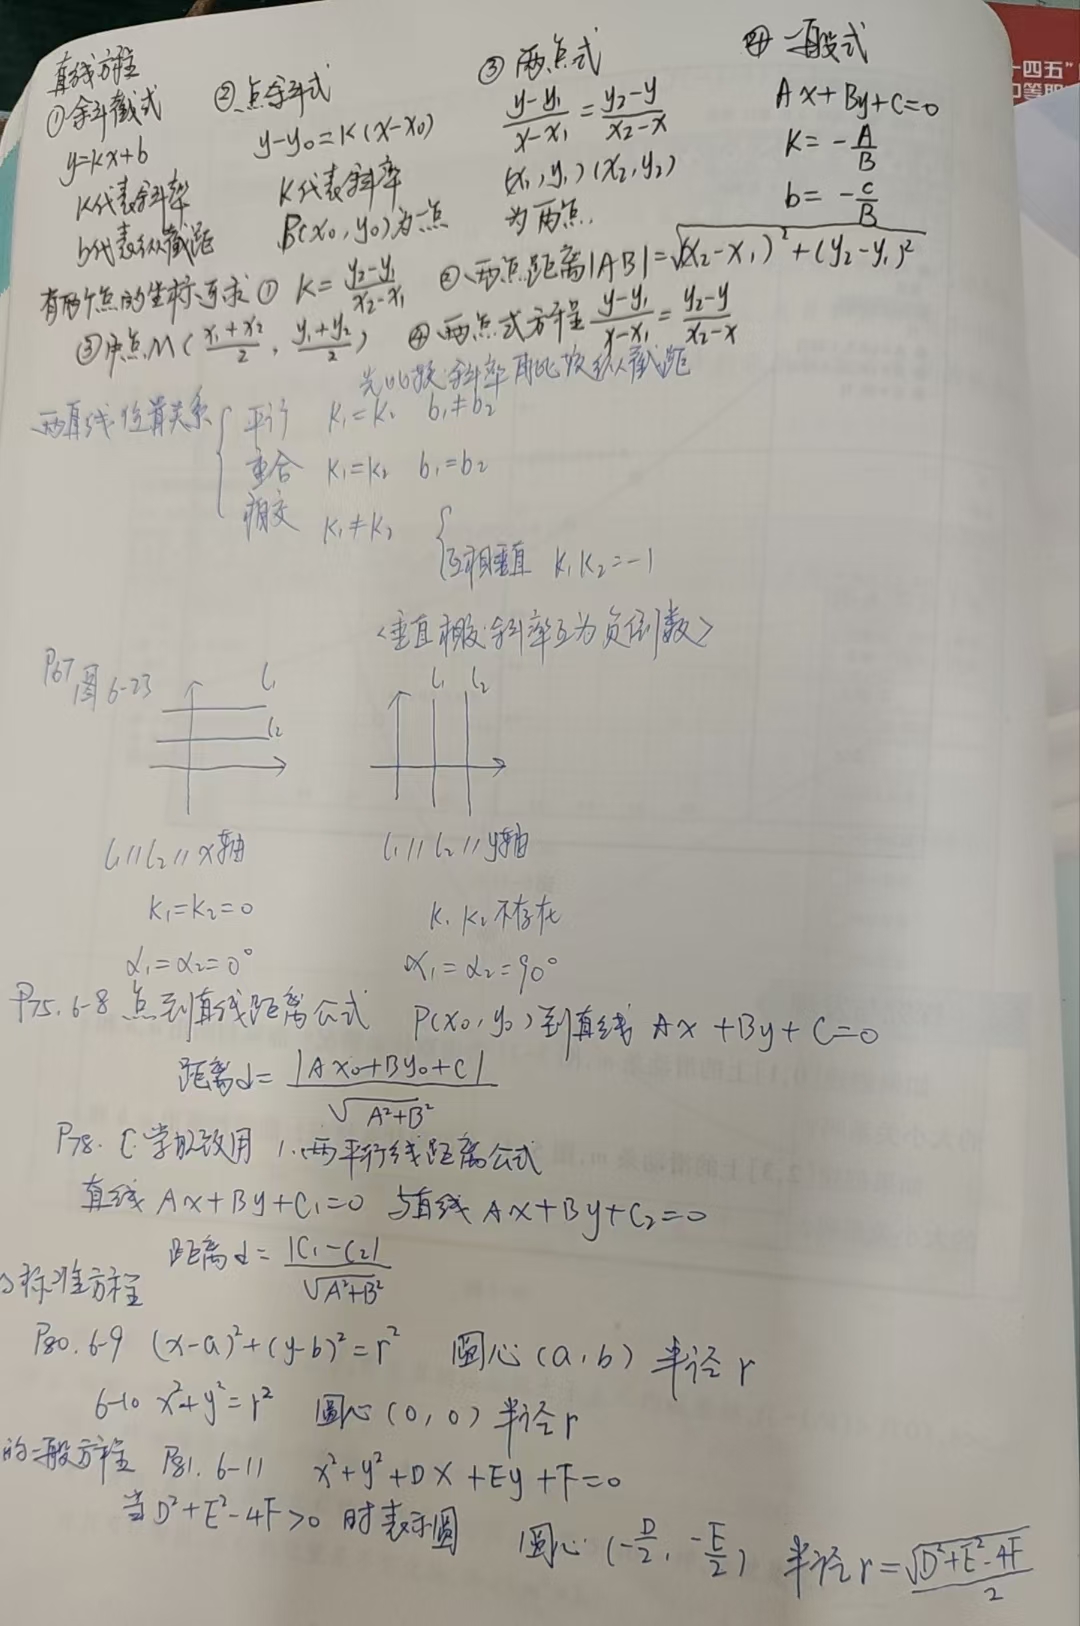 直线方程
①斜截式 ②点斜式 ③两点式 ④一般式
y=kx+b y-y₀=K(x-x₀) (y-y₁)/(x-x₁)=(y₂-y)/(x₂-x) Ax+By+C=0
K代表斜率 K代表斜率 (x₁,y₁)(x₂,y₂) K=-A/B
b代表纵截距 P(x₀,y₀)为一点 为两点. b=-C/B
有两个点的坐标可求① K=(y₂-y₁)/(x₂-x₁) ②两点距离|AB|=√((x₂-x₁)²+(y₂-y₁)²)
③中点M((x₁+x₂)/2,(y₁+y₂)/2) ④两点式方程(y-y₁)/(x-x₁)=(y₂-y)/(x₂-x)
先比较斜率再比较纵截距
两直线位置关系{平行 K₁=K₂ b₁≠b₂
重合 K₁=K₂ b₁=b₂
相交 K₁≠K₂
{互相垂直 K₁K₂=-1
<垂直相交:斜率互为负倒数>
P67图6-23
l₁ l₂
l₁ l₂
l₁//l₂//x轴 l₁//l₂//y轴
K₁=K₂=0 K₁K₂不存在
α₁=α₂=0° α₁=α₂=90°
P75.6-8 点到直线距离公式 P(x₀,y₀)到直线Ax+By+C=0
距离d=|Ax₀+By₀+C|/√(A²+B²)
P78.C.学以致用 1.两平行线距离公式
直线Ax+By+C₁=0与直线Ax+By+C₂=0
距离d=|C₁-C₂|/√(A²+B²)
标准方程
P80.6-9 (x-a)²+(y-b)²=r² 圆心(a,b)半径r
6-10 x²+y²=r² 圆心(0,0)半径r
的一般方程 P81.6-11 x²+y²+Dx+Ey+F=0
当D²+E²-4F>0时表示圆 圆心(-D/2,-E/2) 半径r=√(D²+E²-4F)/2
十四五"